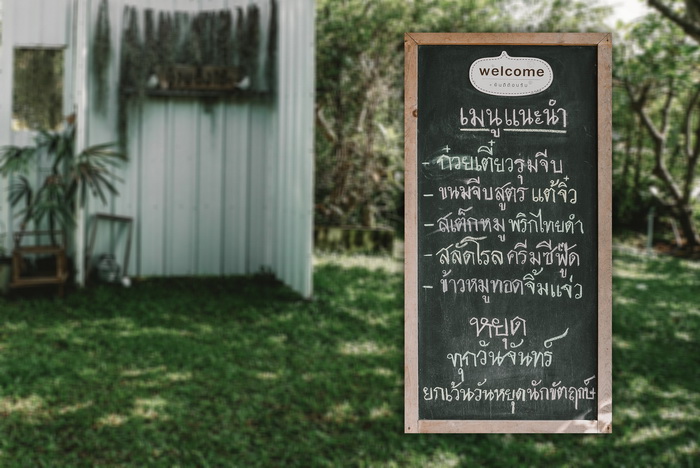 welcome
ยินดีต้อนรับ
เมนูแนะนำ
- ก๋วยเตี๋ยวรุมจีบ
- ขนมจีบสูตรแต้จิ๋ว
- สเต็กหมูพริกไทยดำ
- สลัดโรลครีมซีฟู๊ด
- ข้าวหมูทอดจิ้มแจ่ว
หยุด
ทุกวันจันทร์
ยกเว้นวันหยุดนักขัตฤกษ์